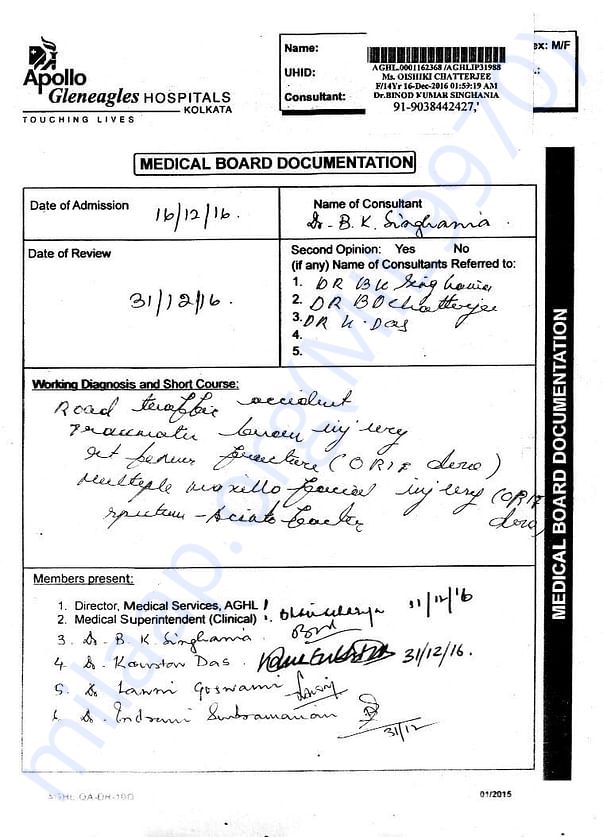 Apollo
Gleneagles HOSPITALS
KOLKATA
TOUCHING LIVES
Name:
UHID:
Consultant:
AGHL.0001162368 /AGHLIP31988
Ms. OISHIKI CHATTERJEE
F/14Yr 16-Dec-2016 01:59:19 AM
Dr.BINOD KUMAR SINGHANIA
91-9038442427,'
ex: M/F
MEDICAL BOARD DOCUMENTATION
Date of Admission 16/12/16.
Name of Consultant
Dr. B. K. Singhania.
Date of Review
31/12/16.
Second Opinion: Yes No
(if any) Name of Consultants Referred to:
1. DR BK Singhania
2. DR BD Chatterjee
3. DR K. Das
4.
5.
Working Diagnosis and Short Course:
Road traffic accident
Traumatic brain injury
femur fracture (ORIF done)
Multiple maxillo facial injury (ORIF done)
Members present:
1. Director, Medical Services, AGHL
2. Medical Superintendent (Clinical) 31/12/16
3. Dr. B. K Singhania.
4. Dr. Kaustav Das. 31/12/16.
5. Dr. Goswami
6. Dr. Indrani Subramanian
31/12
MEDICAL BOARD DOCUMENTATION
AGHL-QA-DR-18G
01/2015
milaap.org(MIL99970)